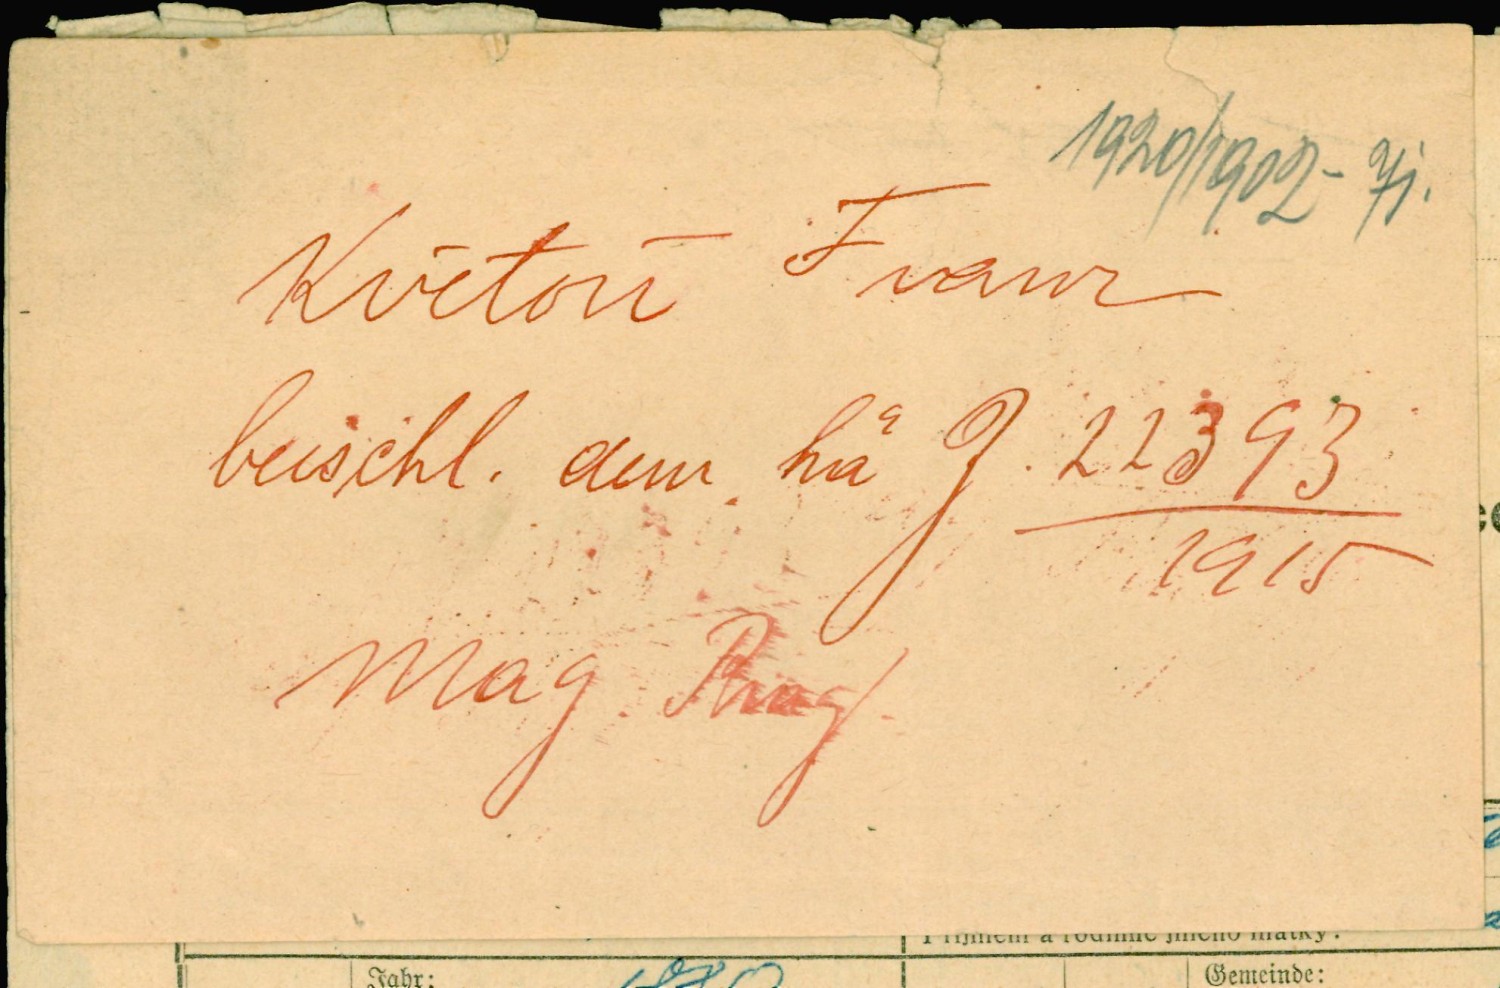 1920/1902 - 7j.
Květoň Franz
beischl. dem hä J. 22393
1915
Mag. Prag.
Příjmení a rodinné jméno matky:
Jahr:
Gemeinde: